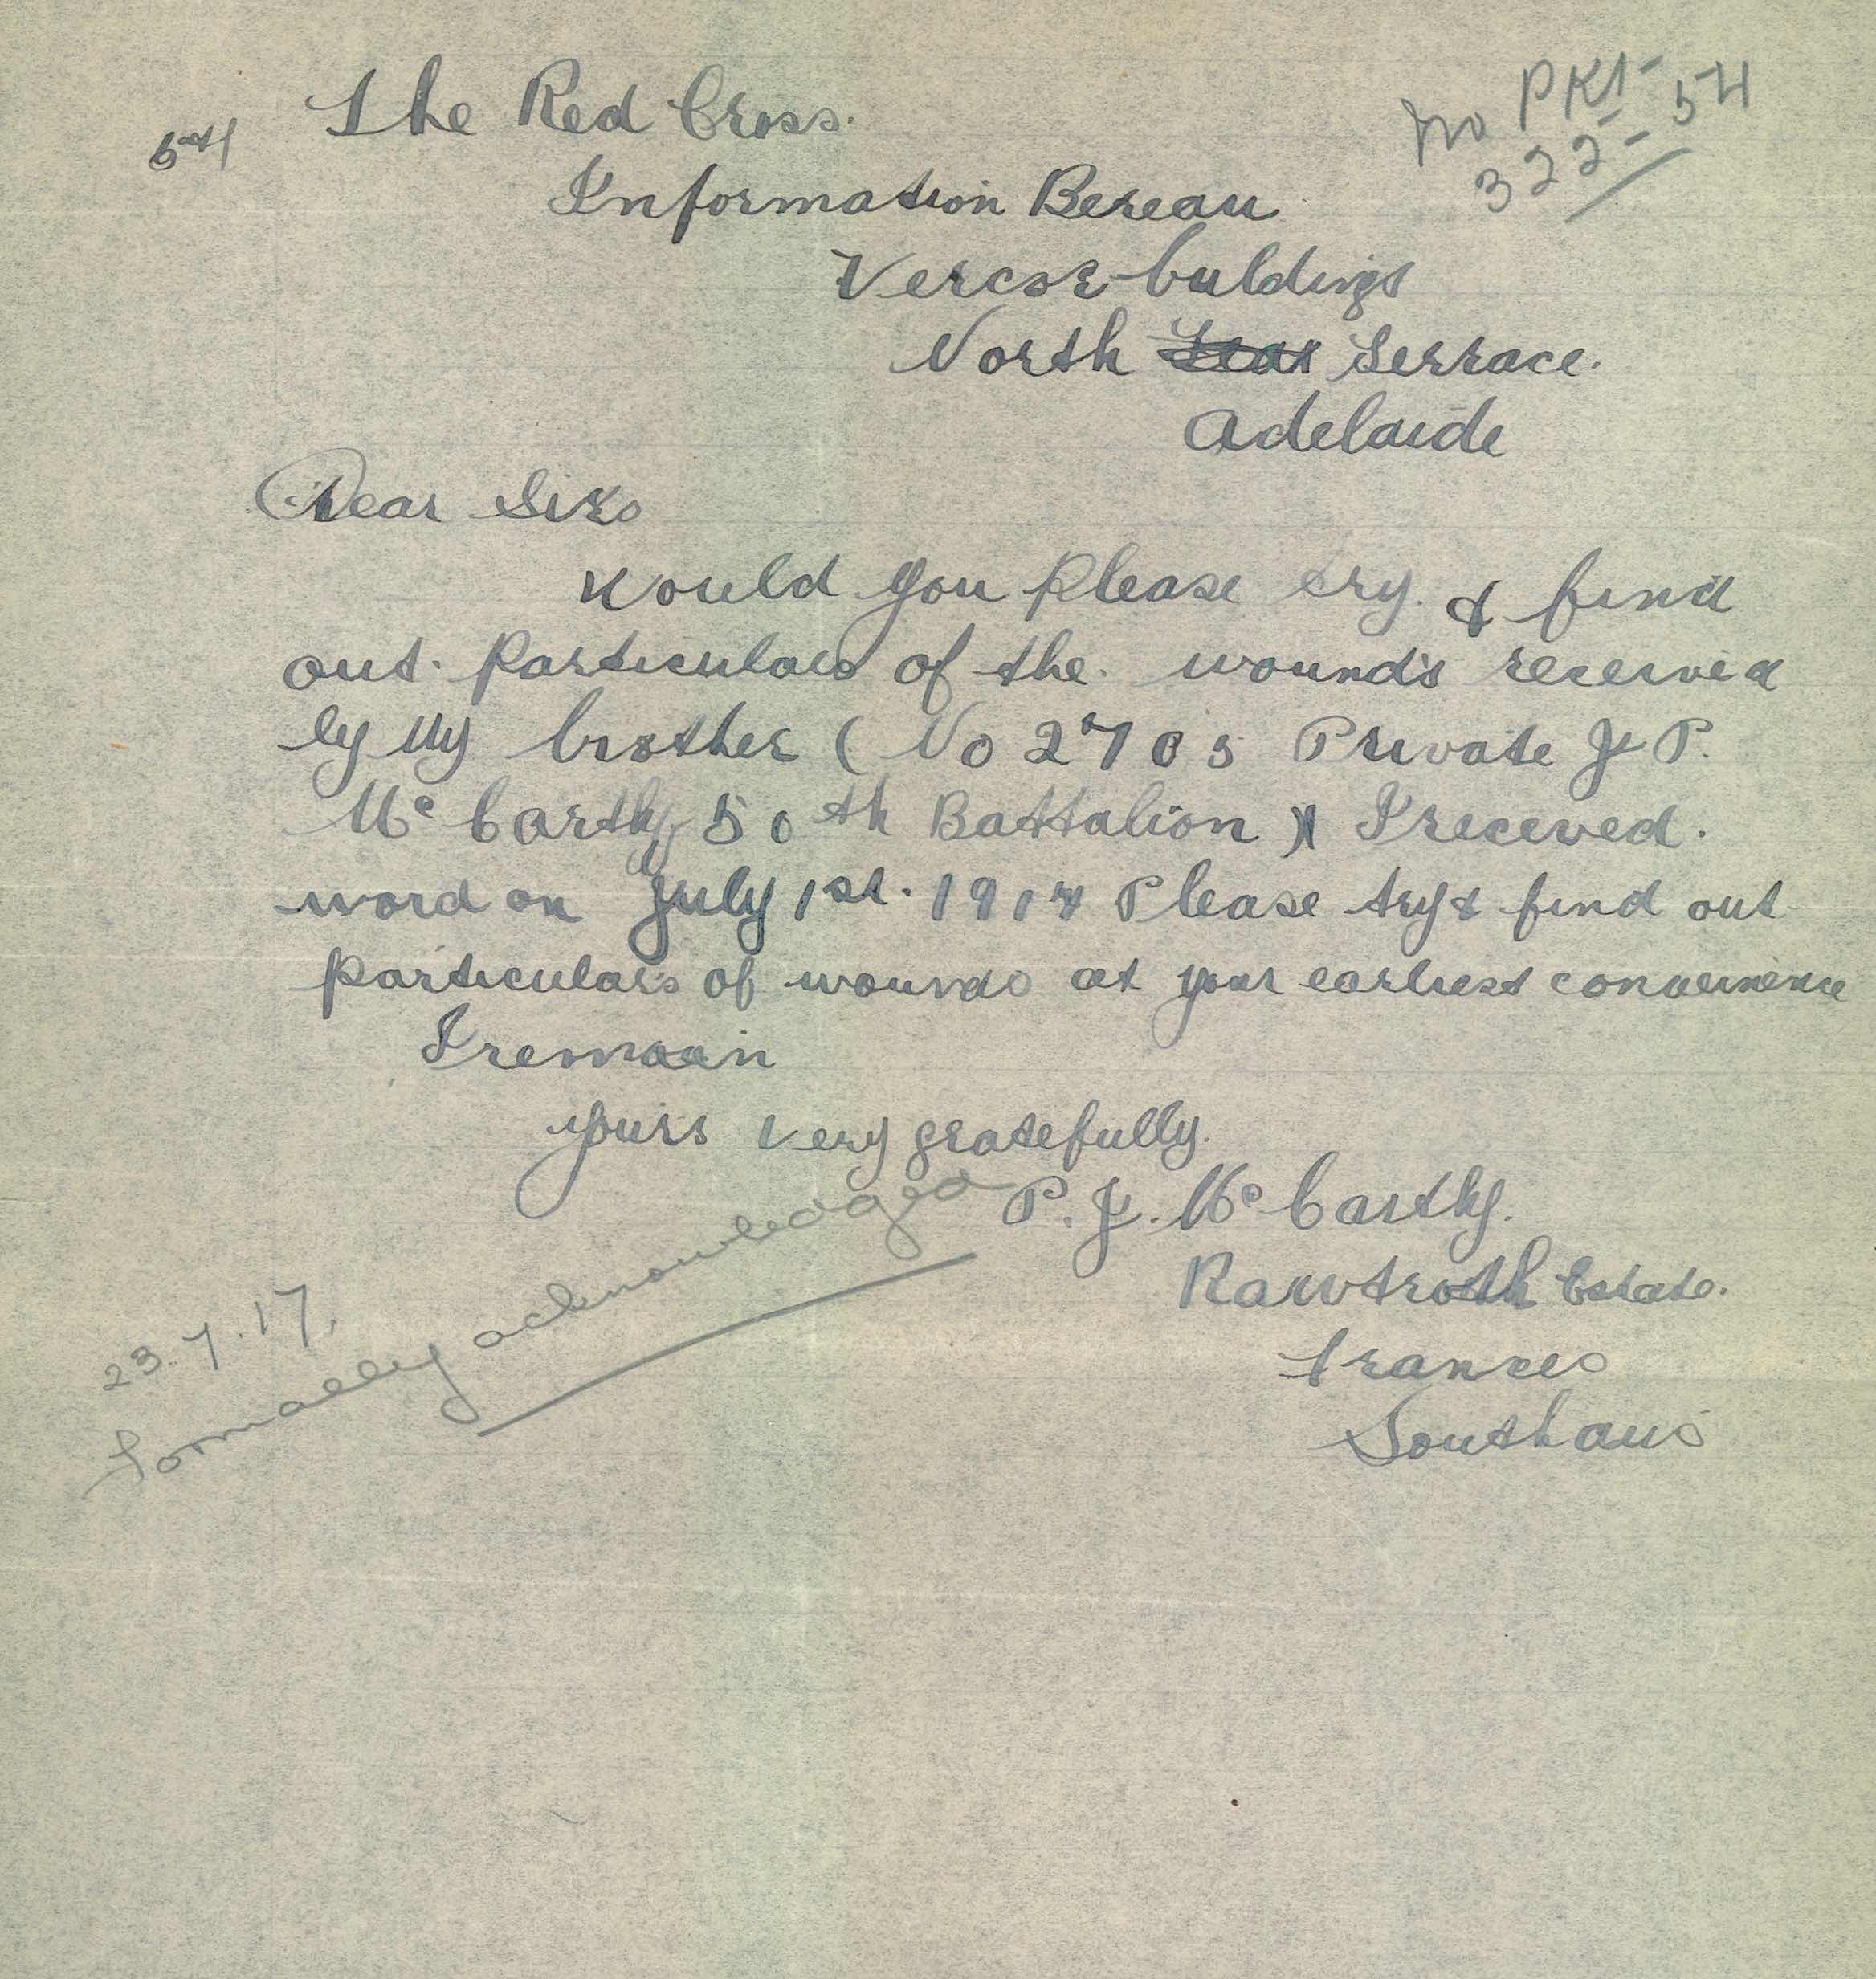 The Red Cross.
No PKT 54
322
54
Information Bereau
Vercoe buldings
North Teat Terrace.
Adelaide
Dear Sirs
Would you Please try. & find
out. Particulars of the. wounds received
by My brother ( No 2705 Private J P.
Mc Carthy 50th Battalion ) I receved.
word on July 1st. 1917 Please try & find out
particulars of wounds at your earliest convenience
I remain
yours very gratefully.
P. J. Mc Carthy.
Rawtroth Estate.
Frances
South aus
23.7.17.
Formally acknowledged